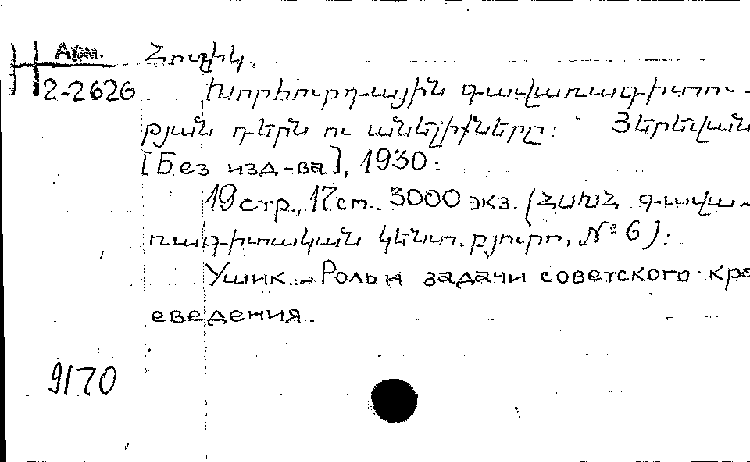 Арм.
Հուշիկ.
Н 2-2626
Խորհուրդային գավառագիտու-
թյան դերն ու անելիքները: Յերեվան
[Без изд-ва], 1930:
19 стр., 17 cm. 3000 экз. (ՀԱԽՀ գավա-
ռագիտական կենտ. բյուրո, № 6):
Ушик. – Роль и задачи советского кра
еведения.
9170